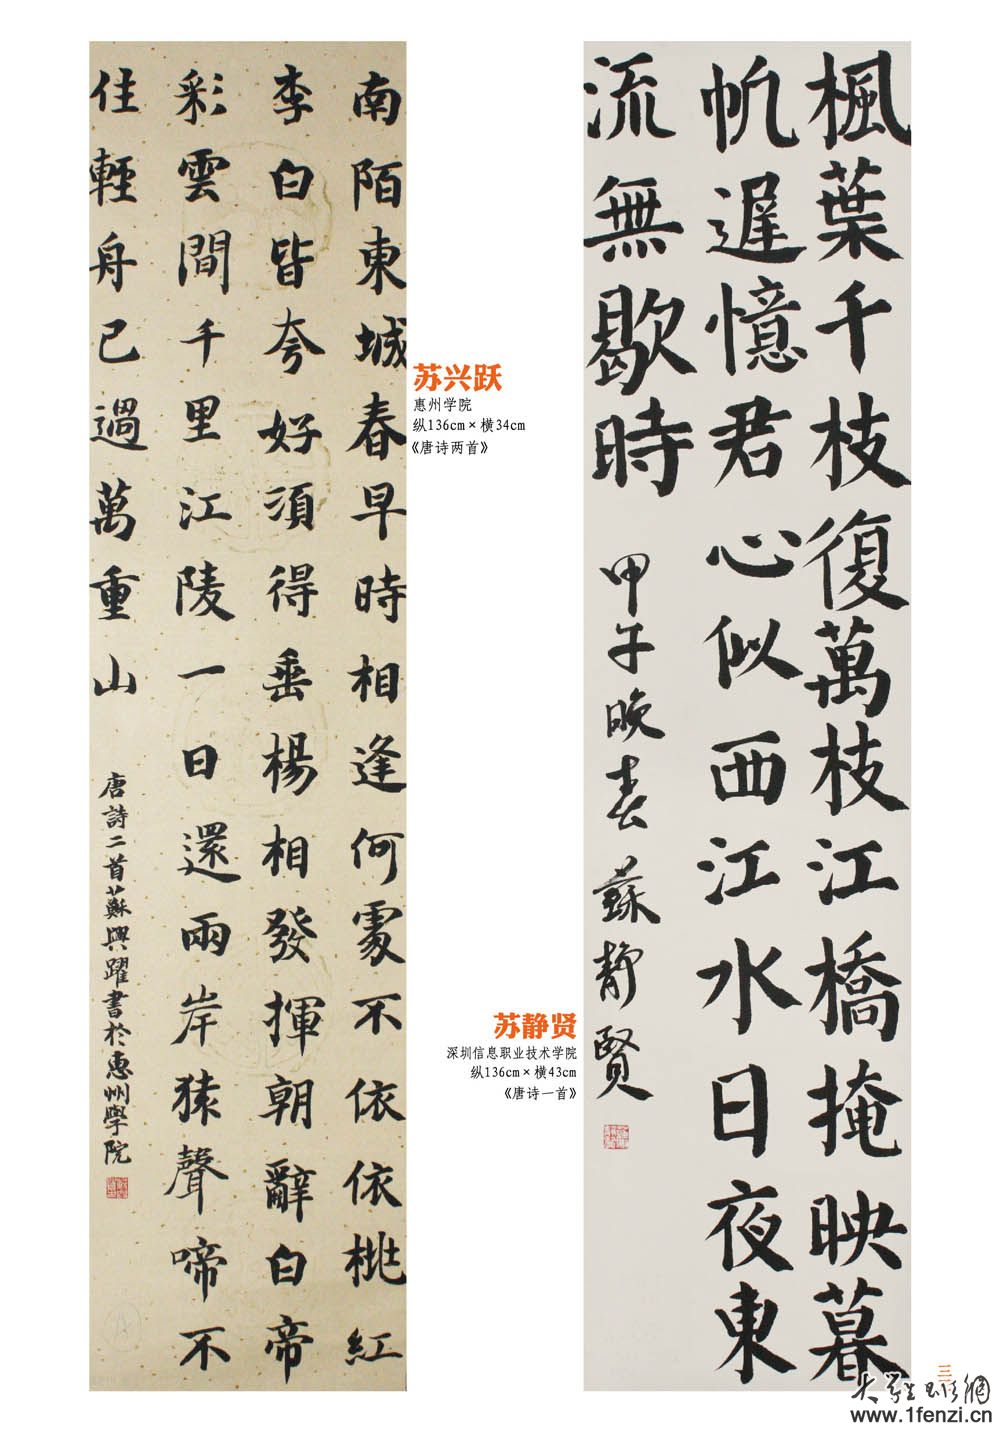 南陌東城春早時相逢何處不依依桃紅
李白皆夸好須得垂楊相發揮朝辭白帝
彩雲間千里江陵一日還兩岸猿聲啼不
住輕舟已過萬重山
唐詩二首蘇興躍書於惠州學院
苏兴跃
惠州学院
纵136cm×横34cm
《唐诗两首》
楓葉千枝復萬枝江橋掩映暮
帆遲憶君心似西江水日夜東
流無歇時
甲午晚春蘇静賢
苏静贤
深圳信息职业技术学院
纵136cm×横43cm
《唐诗一首》
大学生书法網
www.1fenzi.cn